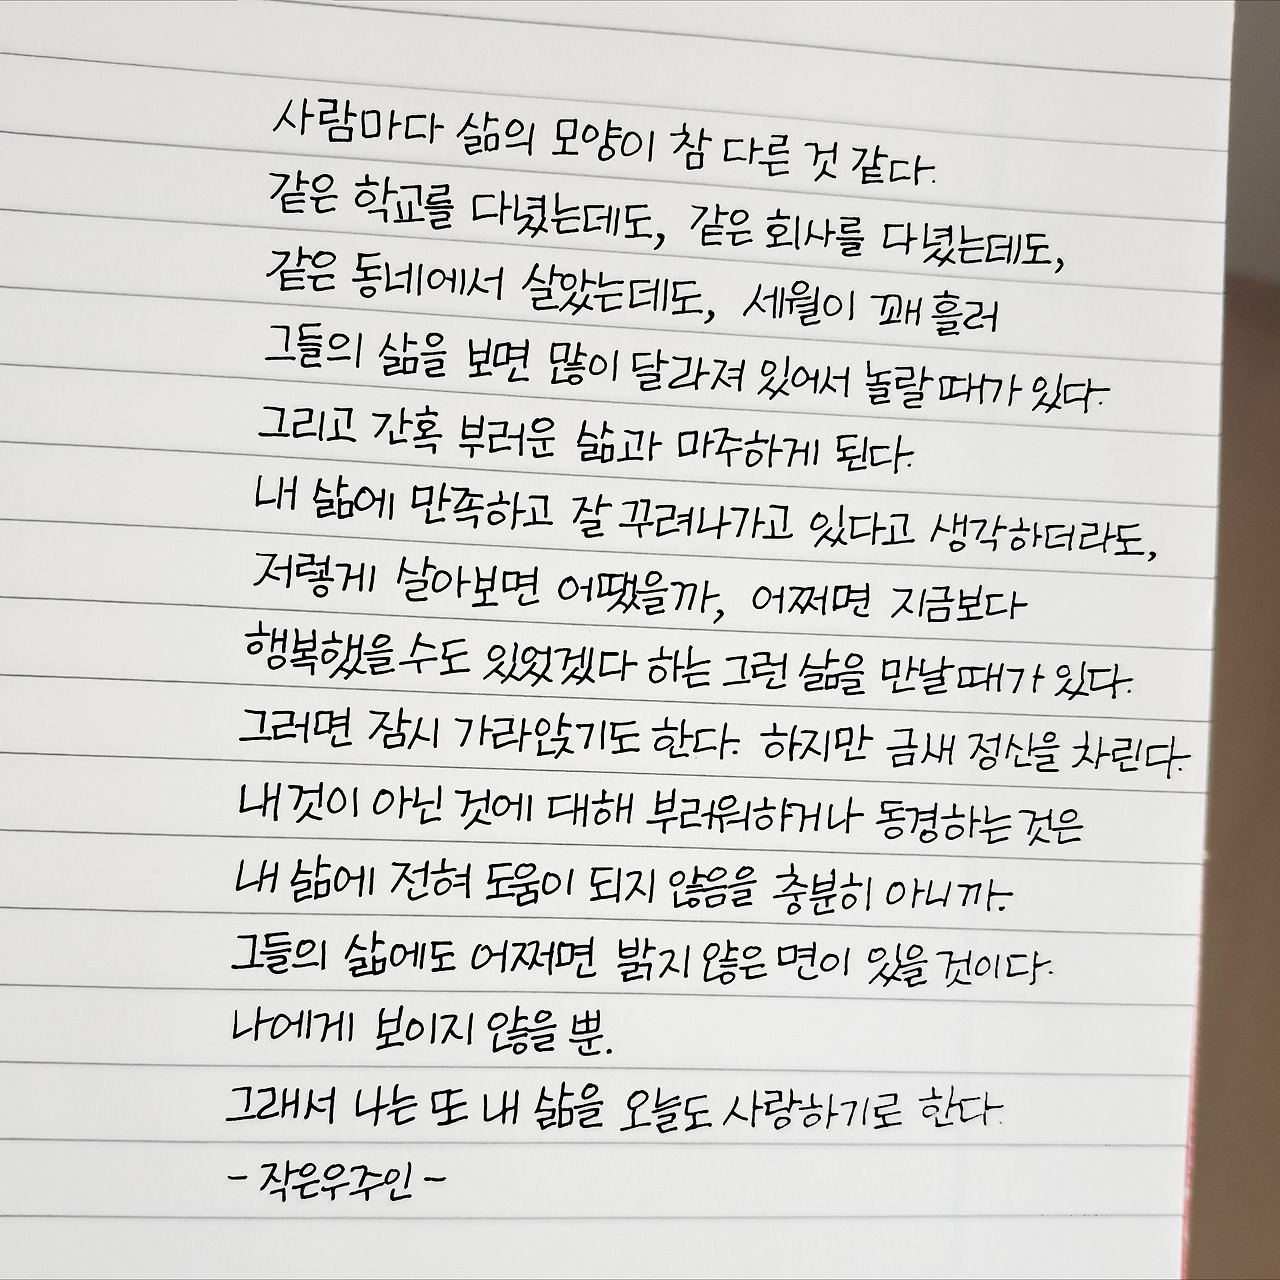 사람마다 삶의 모양이 참 다른 것 같다.
같은 학교를 다녔는데도, 같은 회사를 다녔는데도,
같은 동네에서 살았는데도, 세월이 꽤 흘러
그들의 삶을 보면 많이 달라져 있어서 놀랄 때가 있다.
그리고 간혹 부러운 삶과 마주하게 된다.
내 삶에 만족하고 잘 꾸려나가고 있다고 생각하더라도,
저렇게 살아보면 어땠을까, 어쩌면 지금보다
행복했을 수도 있었겠다 하는 그런 삶을 만날 때가 있다.
그러면 잠시 가라앉기도 한다. 하지만 금새 정신을 차린다.
내 것이 아닌 것에 대해 부러워하거나 동경하는 것은
내 삶에 전혀 도움이 되지 않음을 충분히 아니까.
그들의 삶에도 어쩌면 밝지 않은 면이 있을 것이다.
나에게 보이지 않을 뿐.
그래서 나는 또 내 삶을 오늘도 사랑하기로 한다.
- 작은우주인 -